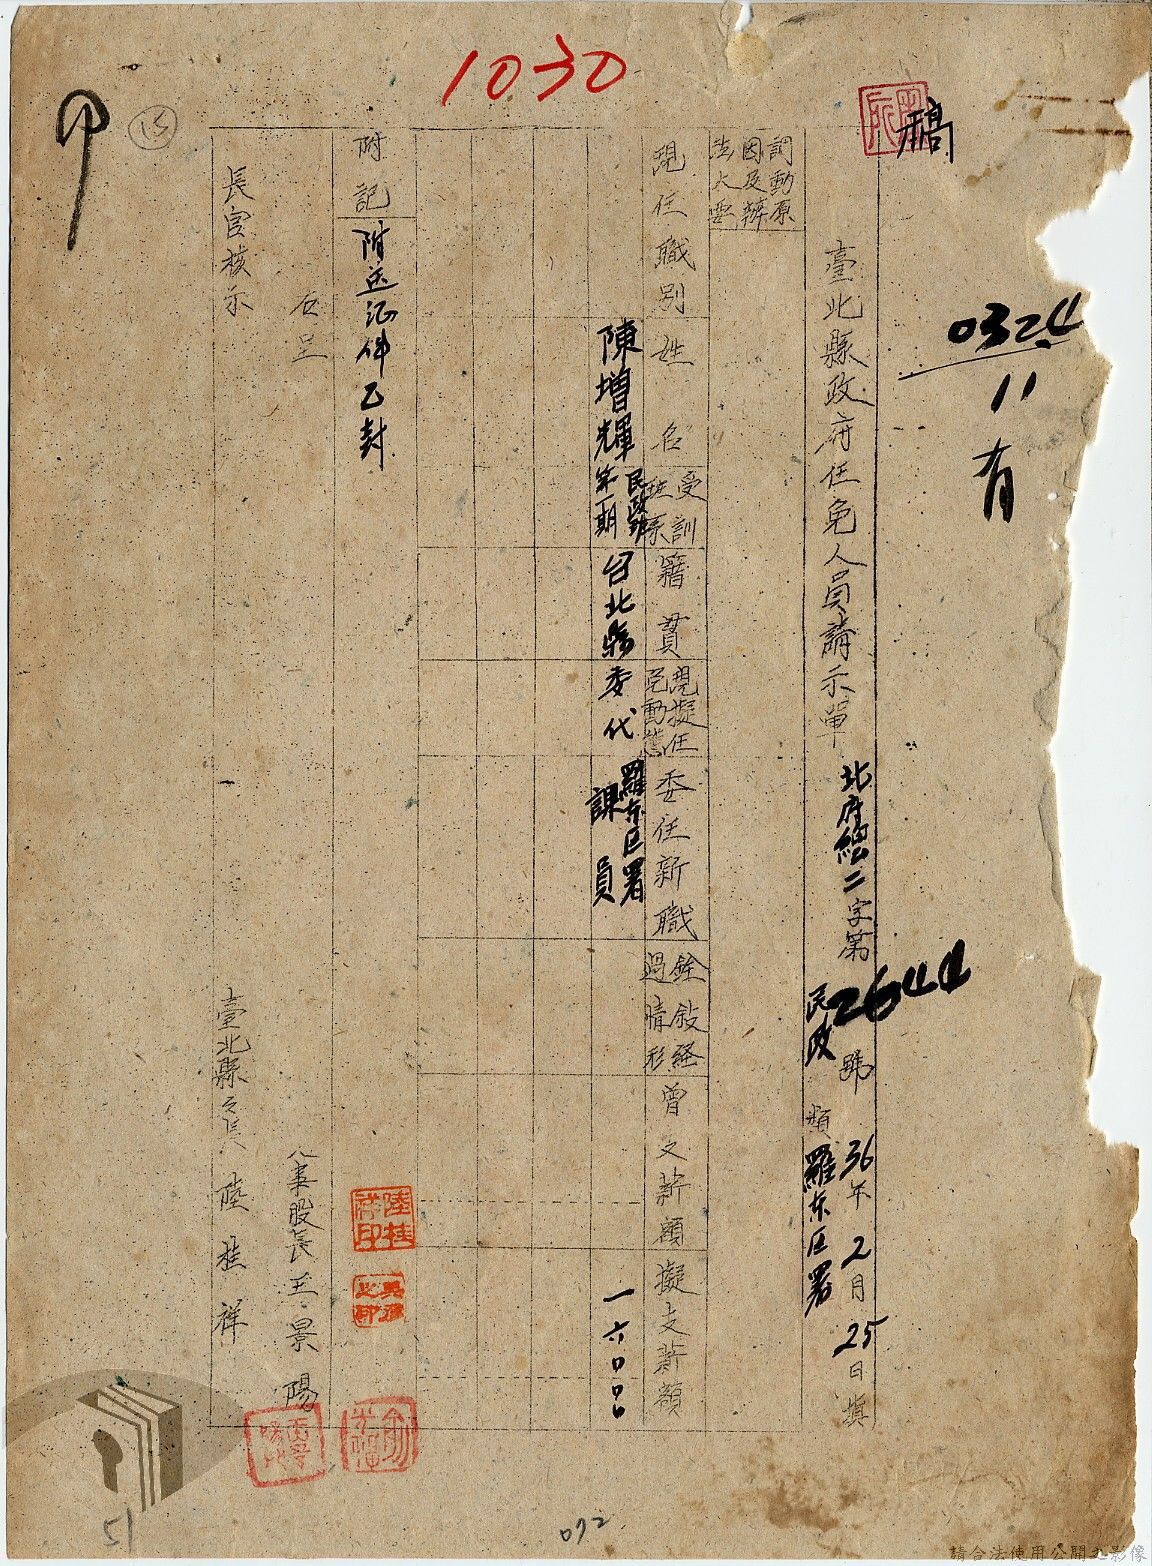 1030
15
稿
0324
11
有
臺北縣政府任免人員請示單
北府總二字第2644號 36年2月25日填
民政類 羅东区署
調動原
因及辦
法大要
現任職別
姓名
受訓
班系
籍貫
現擬任
免動態
委任新職
銓敍経
過情形
曾支薪額
擬支薪額
陳增輝
民政班
第一期
台北縣
委代
羅东区署
課員
一六〇〇〇
附記
附送証件乙封
右呈
長官核示
人事股長王景陽
臺北縣長陸桂祥
陸桂
祥印
51
072
請合法使用公開之影像